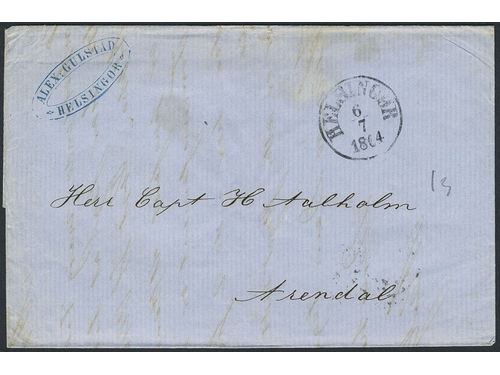 ALEX: GULSTAD
HELSINGÖR
HELSINGÖR
6
7
1864
13
Herr Capt H Aalholm
Arendal